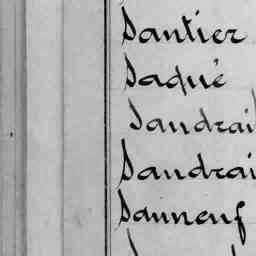 Dantier
Daqué
Daudrai
Daudrai
Dauneuf